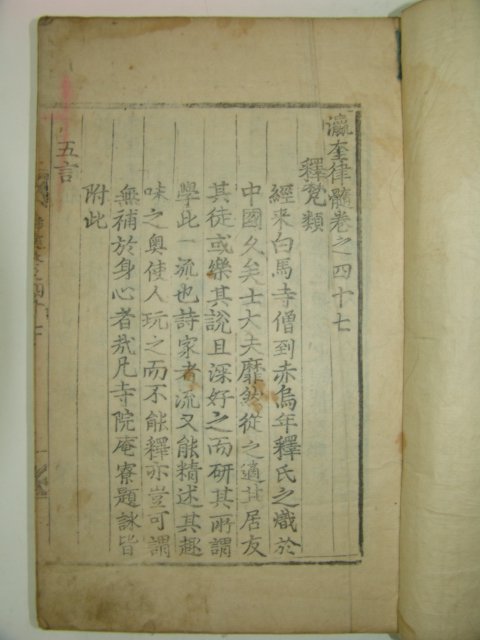 瀛奎律髓卷之四十七
釋梵類
經来白馬寺僧到赤烏年釋氏之熾於
中國久矣士大夫靡然從之適其居友
其徒或樂其說且深好之而研其所謂
學此一流也詩家者流又能精述其趣
味之奧使人玩之而不能釋亦豈可謂
無補於身心者㢤凡寺院庵寮題詠皆
附此
五言